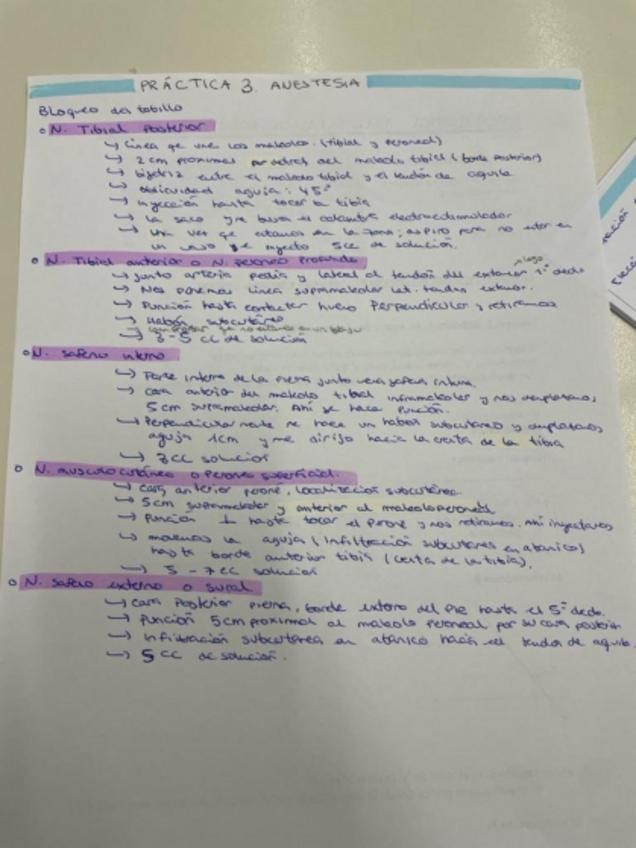 PRÁCTICA 3. ANESTESIA
Bloqueo del tobillo
N. Tibial Posterior
→ Línea que une los maleolos. (tibial y peroneal)
→ 2 cm proximal por detrás del maleolo tibial (borde posterior)
→ bisectriz entre el maleolo tibial y el tendón de aquiles
→ oblicuidad aguja: 45°
→ inyección hasta tocar la tibia
→ La saco y me busca el calambre electroestimulador
→ Una vez que estamos en la zona, aspiro para no estar en
un vaso y se inyecta 5cc de solución.
N. Tibial anterior o N. peroneo profundo
→ junto arteria pedia y lateral al tendón del extensor largo 1º dedo
→ Nos ponemos línea supramaleolar lat. tendón extensor.
→ Punción hasta contactar hueso Perpendicular y retiramos
→ Habón subcutáneo
→ comprobar que no estamos en un
→ 3-5 cc de solución
N. safeno interno
→ Parte interna de la pierna junto vena safena interna.
→ cara anterior del maleolo tibial inframaleolar y nos desplazamos
5 cm supramaleolar. Ahí se hace punción.
→ Perpendicularmente se hace un habón subcutáneo y desplazamos
aguja 1cm y me dirijo hacia la cresta de la tibia
→ 3cc solución
N. musculocutáneo o Peroneo superficial.
→ Cara anterior peroné, localización subcutánea.
→ 5cm supramaleolar y anterior al maleolo peroneal
→ Punción ⊥ hasta tocar el Peroné y nos retiramos. Ahí inyectamos
→ movemos la aguja (infiltración subcutánea en abanico)
hasta borde anterior tibia (cresta de la tibia).
→ 5-7cc solución
N. safeno externo o sural
→ Cara Posterior pierna, borde externo del pie hasta el 5º dedo.
→ Punción 5cm proximal al maleolo peroneal por su cara posterior
→ Infiltración subcutánea en abanico hacia el tendón de aquiles.
→ 5 cc de solución.